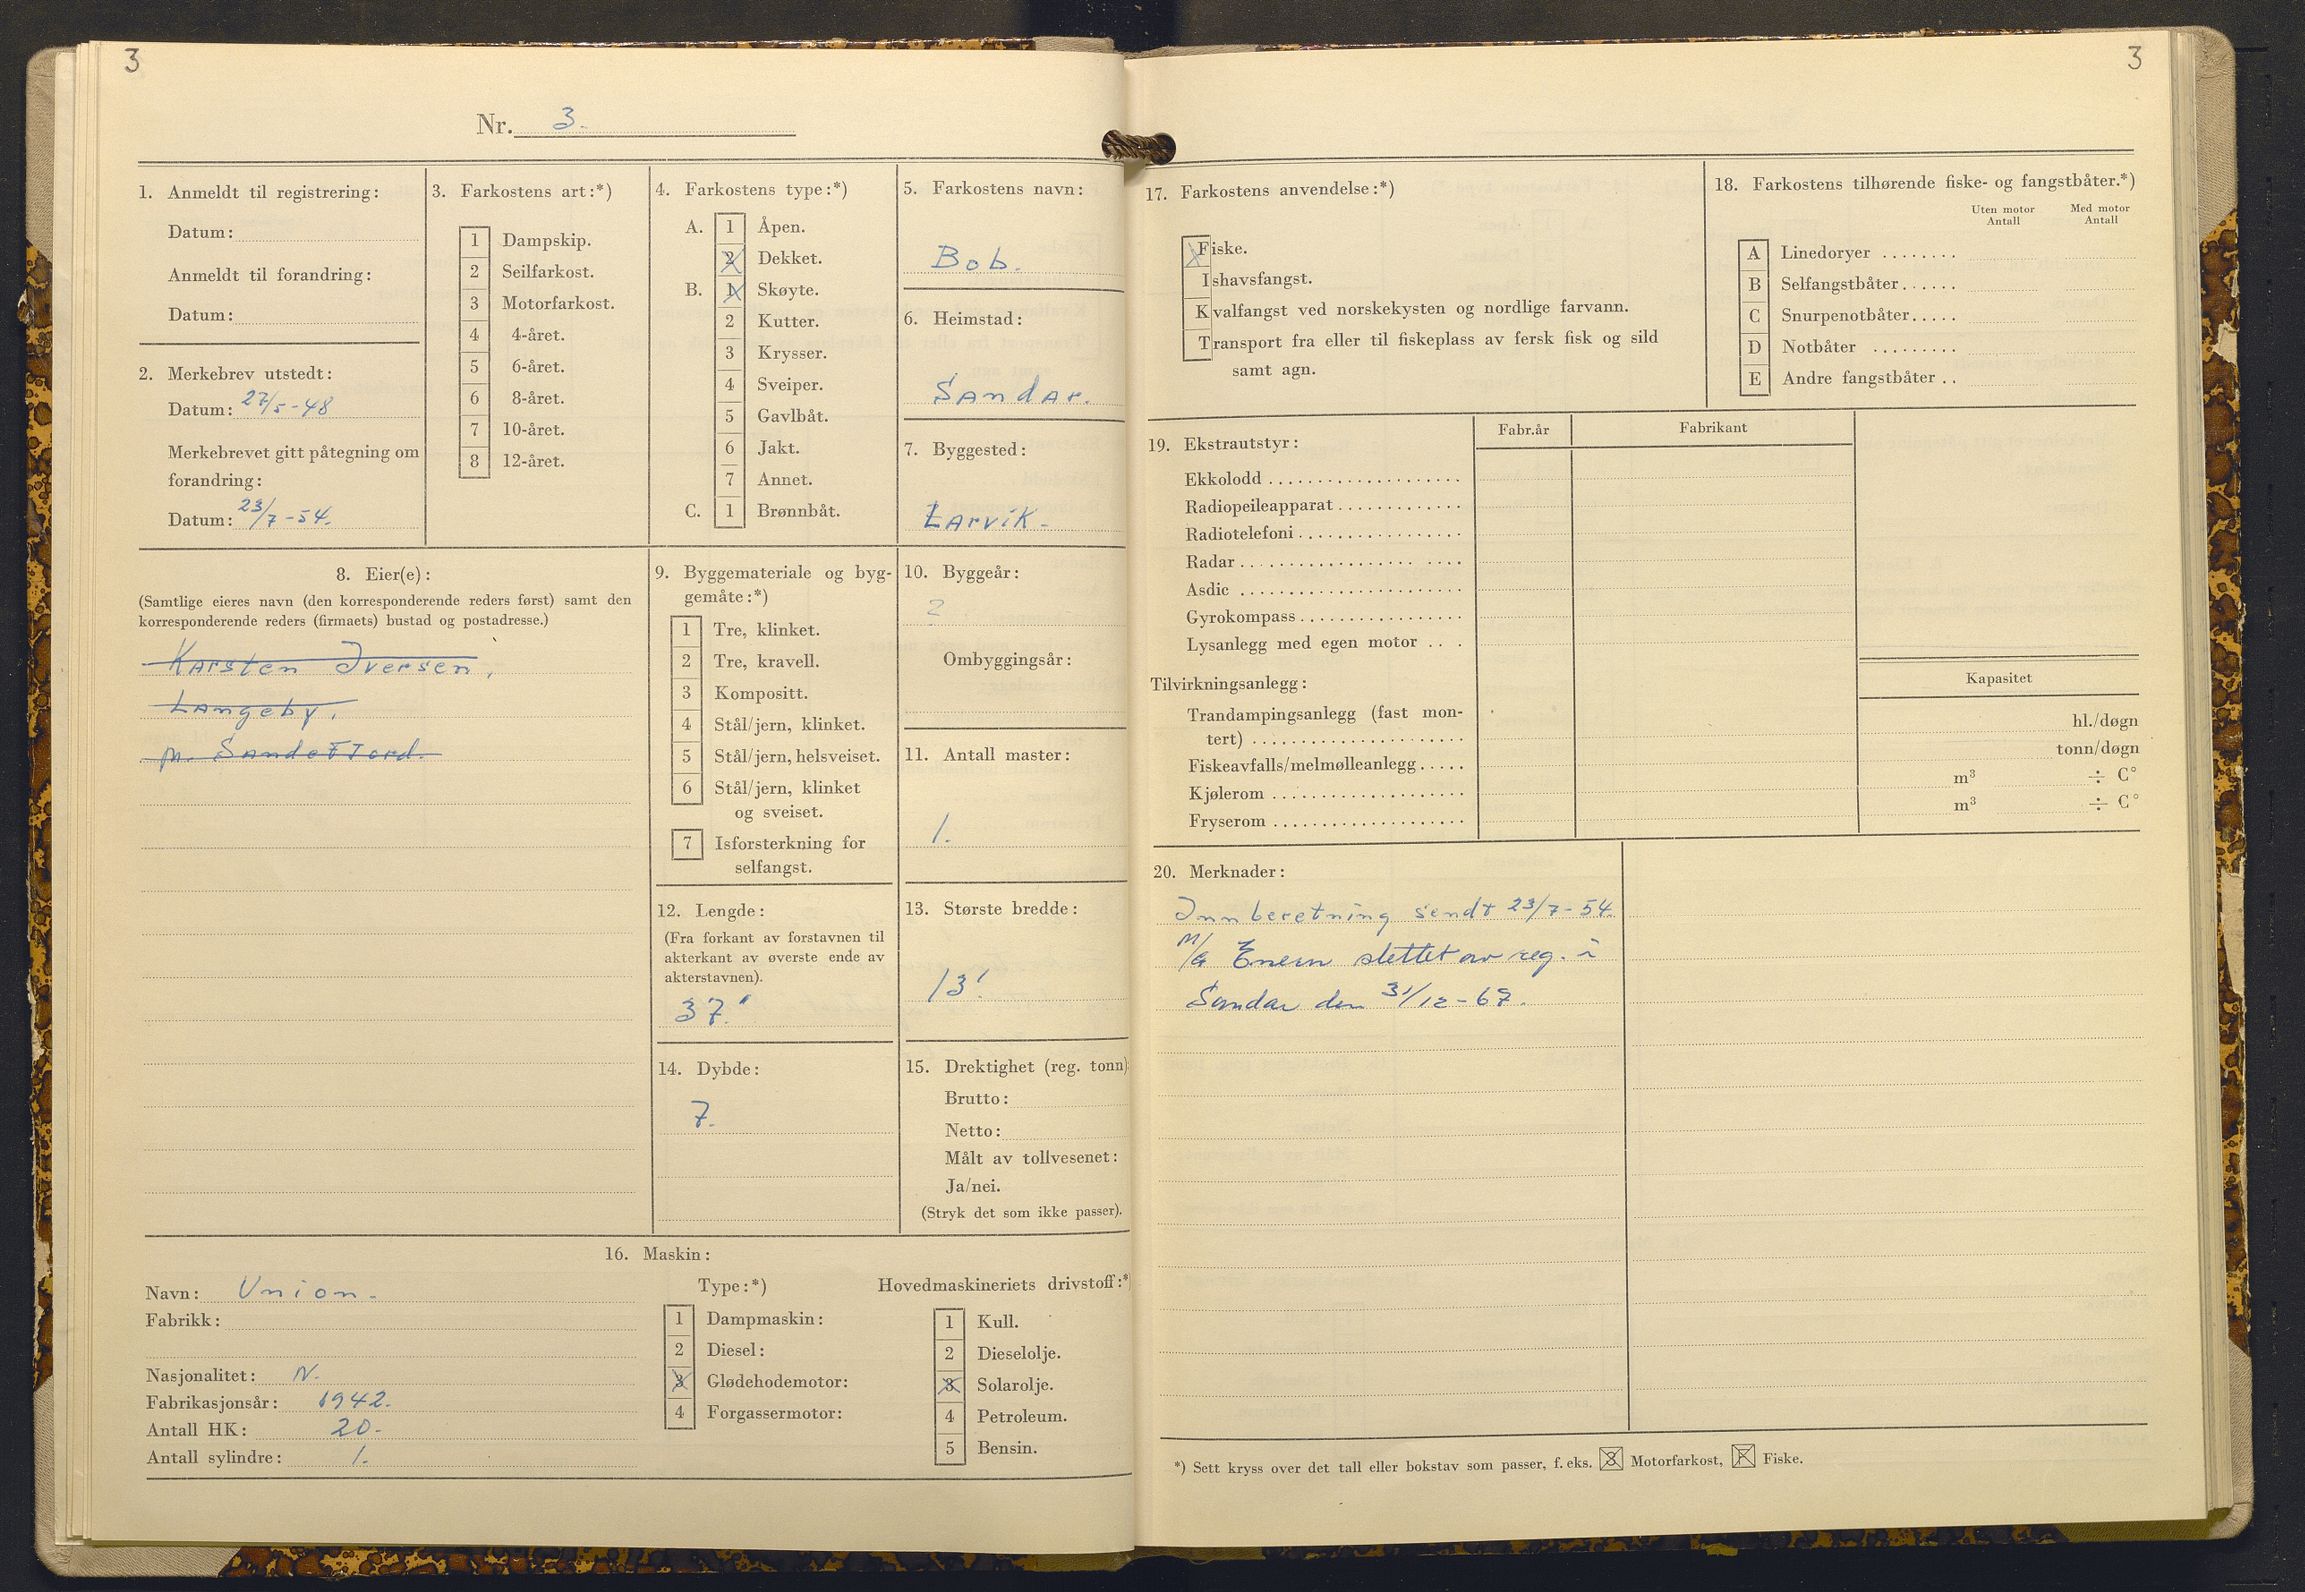 3
Nr. 3.
1. Anmeldt til registrering:
Datum:
Anmeldt til forandring:
Datum:
2. Merkebrev utstedt:
Datum: 27/5-48
Merkebrevet gitt påtegning om
forandring:
Datum: 23/7-54.
3. Farkostens art:*)
1 Dampskip.
2 Seilfarkost.
3 Motorfarkost.
4 4-året.
5 6-året.
6 8-året.
7 10-året.
8 12-året.
4. Farkostens type:*)
A. 1 Åpen.
2 Dekket.
B. 1 Skøyte.
2 Kutter.
3 Krysser.
4 Sveiper.
5 Gavlbåt.
6 Jakt.
7 Annet.
C. 1 Brønnbåt.
5. Farkostens navn:
Bob.
6. Heimstad:
Sandar.
7. Byggested:
Larvik-
8. Eier(e):
(Samtlige eieres navn (den korresponderende reders først) samt den
korresponderende reders (firmaets) bustad og postadresse.)
Karsten Iversen,
Langeby,
pr. Sandefjord.
9. Byggemateriale og byg-
gemåte:*)
1 Tre, klinket.
2 Tre, kravell.
3 Kompositt.
4 Stål/jern, klinket.
5 Stål/jern, helsveiset.
6 Stål/jern, klinket
og sveiset.
7 Isforsterkning for
selfangst.
10. Byggeår:
?
Ombyggingsår:
11. Antall master:
1.
12. Lengde:
(Fra forkant av forstavnen til
akterkant av øverste ende av
akterstavnen).
37.'
13. Største bredde:
13!
14. Dybde:
7.
15. Drektighet (reg. tonn):
Brutto:
Netto:
Målt av tollvesenet:
Ja/nei.
(Stryk det som ikke passer).
16. Maskin:
Navn: Union-
Fabrikk:
Nasjonalitet: N.
Fabrikasjonsår: 1942.
Antall HK: 20-
Antall sylindre: 1.
Type:*)
1 Dampmaskin:
2 Diesel:
3 Glødehodemotor:
4 Forgassermotor:
Hovedmaskineriets drivstoff:*)
1 Kull.
2 Dieselolje.
3 Solarolje.
4 Petroleum.
5 Bensin.
3
17. Farkostens anvendelse:*)
Fiske.
Ishavsfangst.
Kvalfangst ved norskekysten og nordlige farvann.
Transport fra eller til fiskeplass av fersk fisk og sild
samt agn.
18. Farkostens tilhørende fiske- og fangstbåter.*)
Uten motor Med motor
Antall Antall
A Linedoryer ........
B Selfangstbåter......
C Snurpenotbåter.....
D Notbåter .........
E Andre fangstbåter ..
19. Ekstrautstyr:
Fabr.år Fabrikant
Ekkolodd ....................
Radiopeileapparat .............
Radiotelefoni .................
Radar ....................
Asdic .......................
Gyrokompass .................
Lysanlegg med egen motor ...
Tilvirkningsanlegg:
Kapasitet
Trandampingsanlegg (fast mon-
tert) ...................... hl./døgn
Fiskeavfalls/melmølleanlegg..... tonn/døgn
Kjølerom .................... m³ ÷ C°
Fryserom .................... m³ ÷ C°
20. Merknader:
Innberetning sendt 23/7-54.
slettet av reg. i
Sandar den 31/12-67.
*) Sett kryss over det tall eller bokstav som passer, f. eks. 3 Motorfarkost, F Fiske.